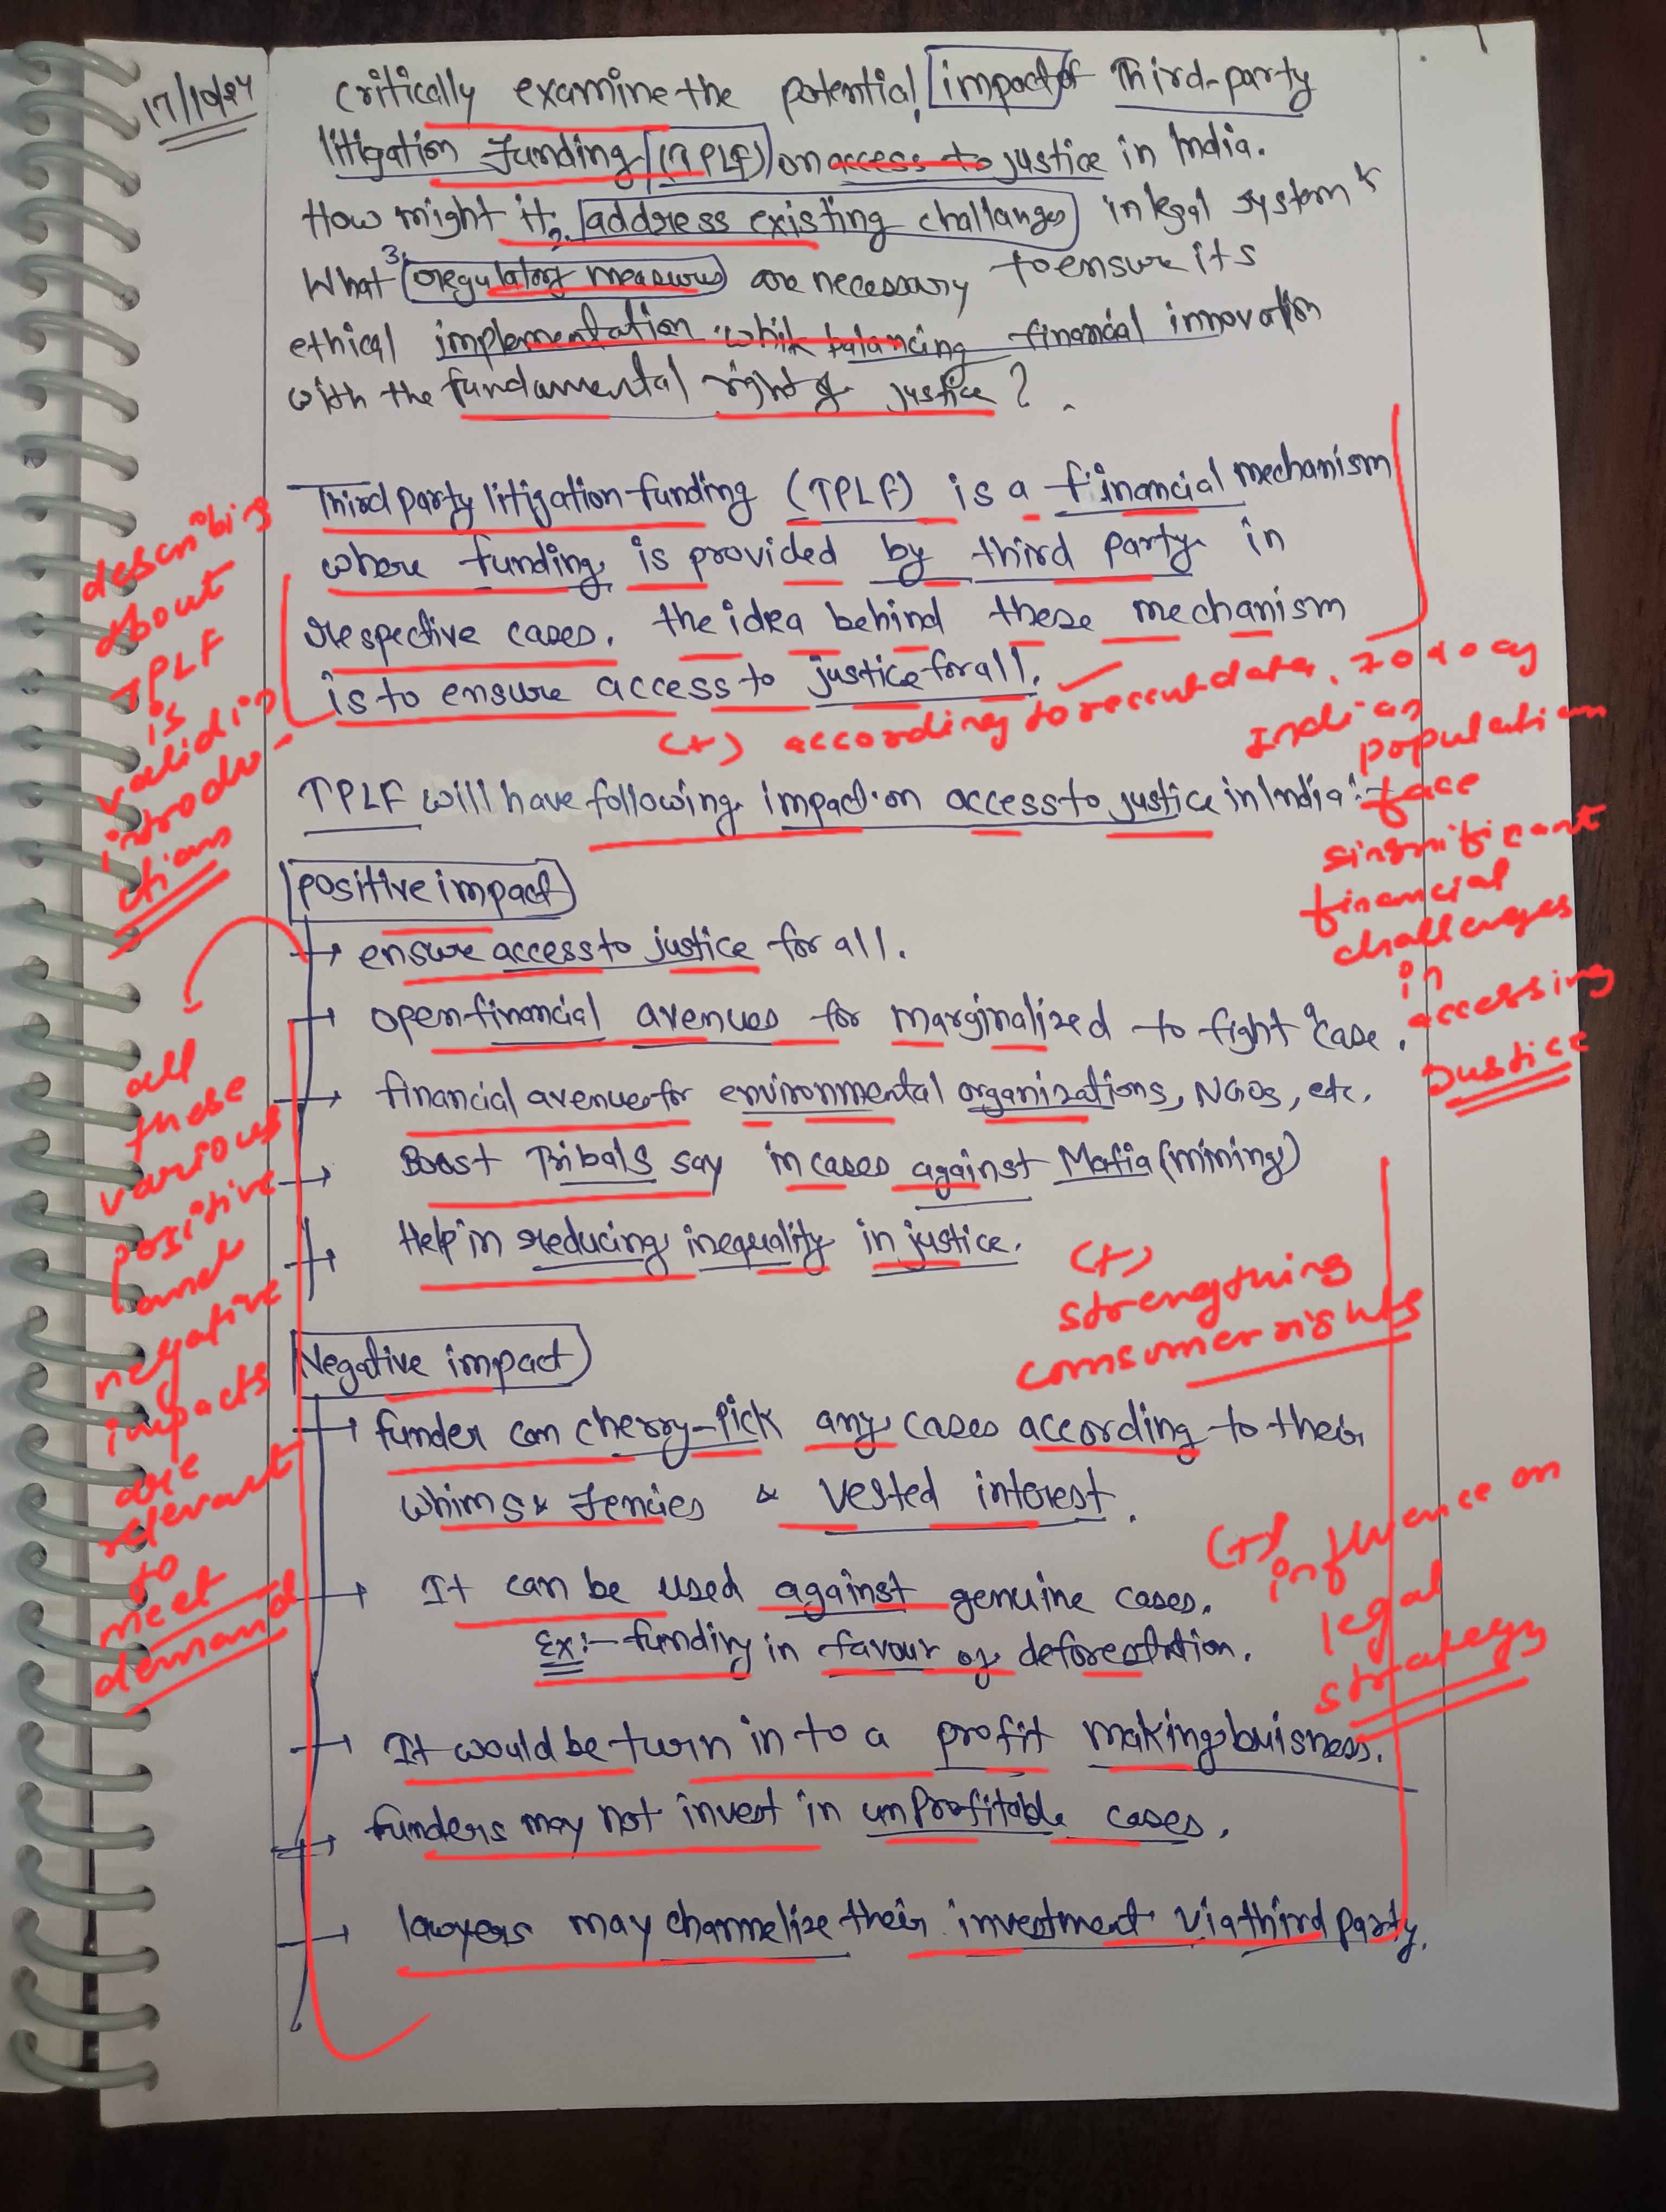 17/10/24
Critically examine the potential impact of Third-party
litigation Funding (TPLF) on access to justice in India.
How might it 2. address existing challanges in legal system &
What 3. regulatory measures are necessary to ensure its
ethical implementation while balancing financial innovation
with the fundamental right of justice?
Third party litigation funding (TPLF) is a financial mechanism
where funding is provided by third party in
respective cases. the idea behind these mechanism
is to ensure access to justice for all.
describing
about
TPLF
is
valid in
introdu-
ctions
(+) according to recent data, 70% of
Indian
population
face
singnificant
financial
challenges
in
accessing
Justice
TPLF will have following impact on access to justice in India :-
Positive impact
→ ensure access to justice for all.
→ open financial avenues for marginalized to fight a case.
→ financial avenues for environmental organizations, NGOs, etc.
→ Boost Tribals say in cases against Mafia (mining)
→ Help in reducing inequality in justice.
(+)
strengthing
consumer rights
all
these
various
positive
and
negative
impacts
are
relevant
to
meet
demand
Negative impact
→ funder can cherry-pick any cases according to their
whims & fencies & vested interest.
→ It can be used against genuine cases.
Ex:- funding in favour of deforestation.
(+)
influence on
legal
strategy
→ It would be turn in to a profit making buisness.
→ funders may not invest in unprofitable cases.
→ lawyers may channelize their investment via third party.